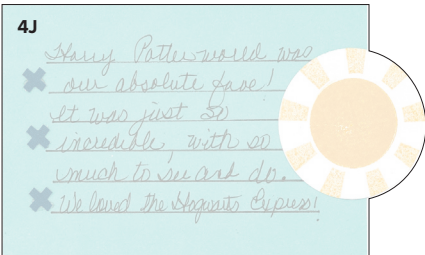 4J
Harry Potter world was
our absolute fave!
It was just so
incredible, with so
much to see and do.
We loved the Hogwarts Express!